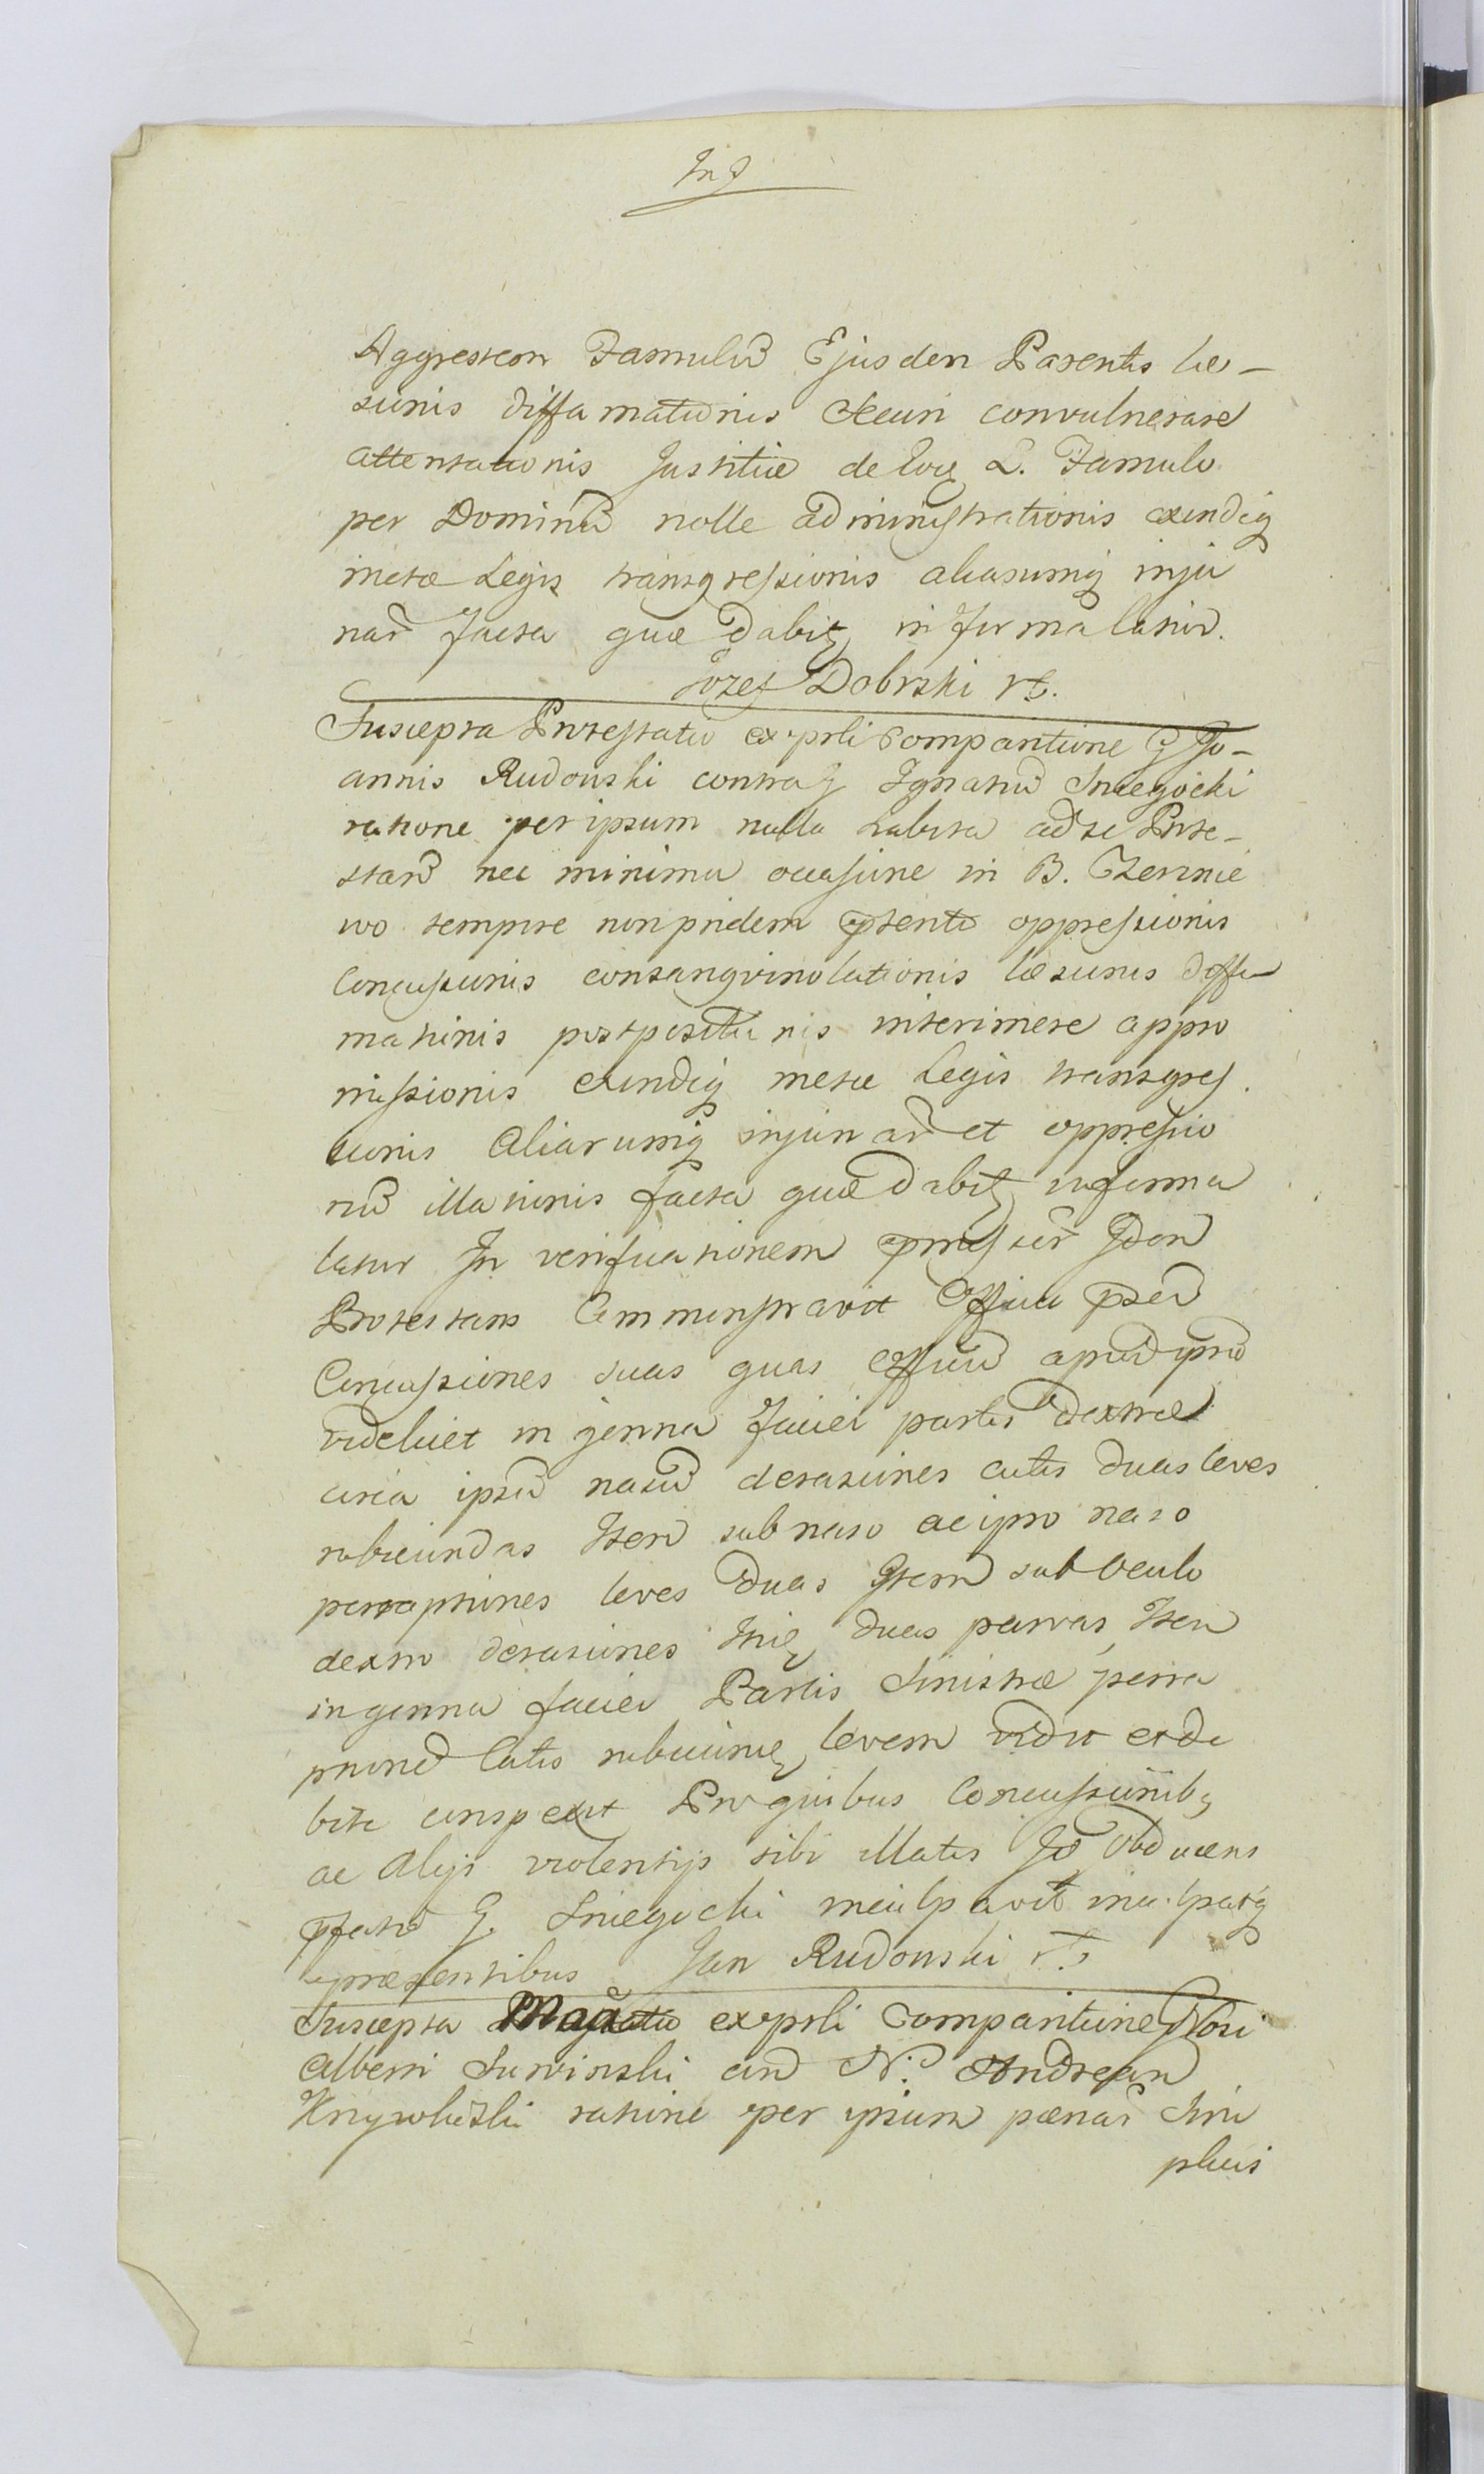 Ind
Aggression Famulū Ejusdem Parentis læ-
sionis diffamationis Securi convulnerare
attentationis Justitiæ de Eoq L. Famulo
per Dominū nolle administrationis exindeq
metæ Legis transgressionis aliarumq inju
riar̄ facta quæ dabit in forma latior.
Jozef Dobrski
Suscepta Protestatio ex psli Comparitione G Jo-
annis Rudowski contra G Ignatiū Sniegocki
ratione per ipsum nulla habita ad se Prote-
stan̄ nec minima occasione in B. Czernie
wo tempore non pridem pterito oppressionis
Concussionis consangvinolationis læsionis diffa
mationis postpositionis interimere appro
missionis exindeq metæ Legis transgres
sionis Aliarumq injuriar̄ et oppressio
nū illationis facta quæ dabit in forma
latior In verificationem pmissor̄ Idem
Protestans Commonstravit Officio psen̄
Concussiones suas quas Officiū apud ipsū
videlicet in genna faciei partis dextræ
circa ipsū nasū derasiones cutis duas leves
rubicundas Item sub naso ac ipso naso
perraptiones leves duas Item sub Oculo
dextro derasiones duas parvas, Item
in genna faciei Partis Sinistræ perra
ptionē Cutis levem vidit et de
bite conspexit Pro quibus Concussionib9
ac Alijs violentijs sibi illatis Jō Obducens
pfatū G. Sniegocki inculpavit inculpatq
præsentibus Jan Rudowski
Suscepta ex psli Comparitione Nosi
Alberti Suwinski cum N. Andream
ratione per ipsum pænar̄ Sim
plicis